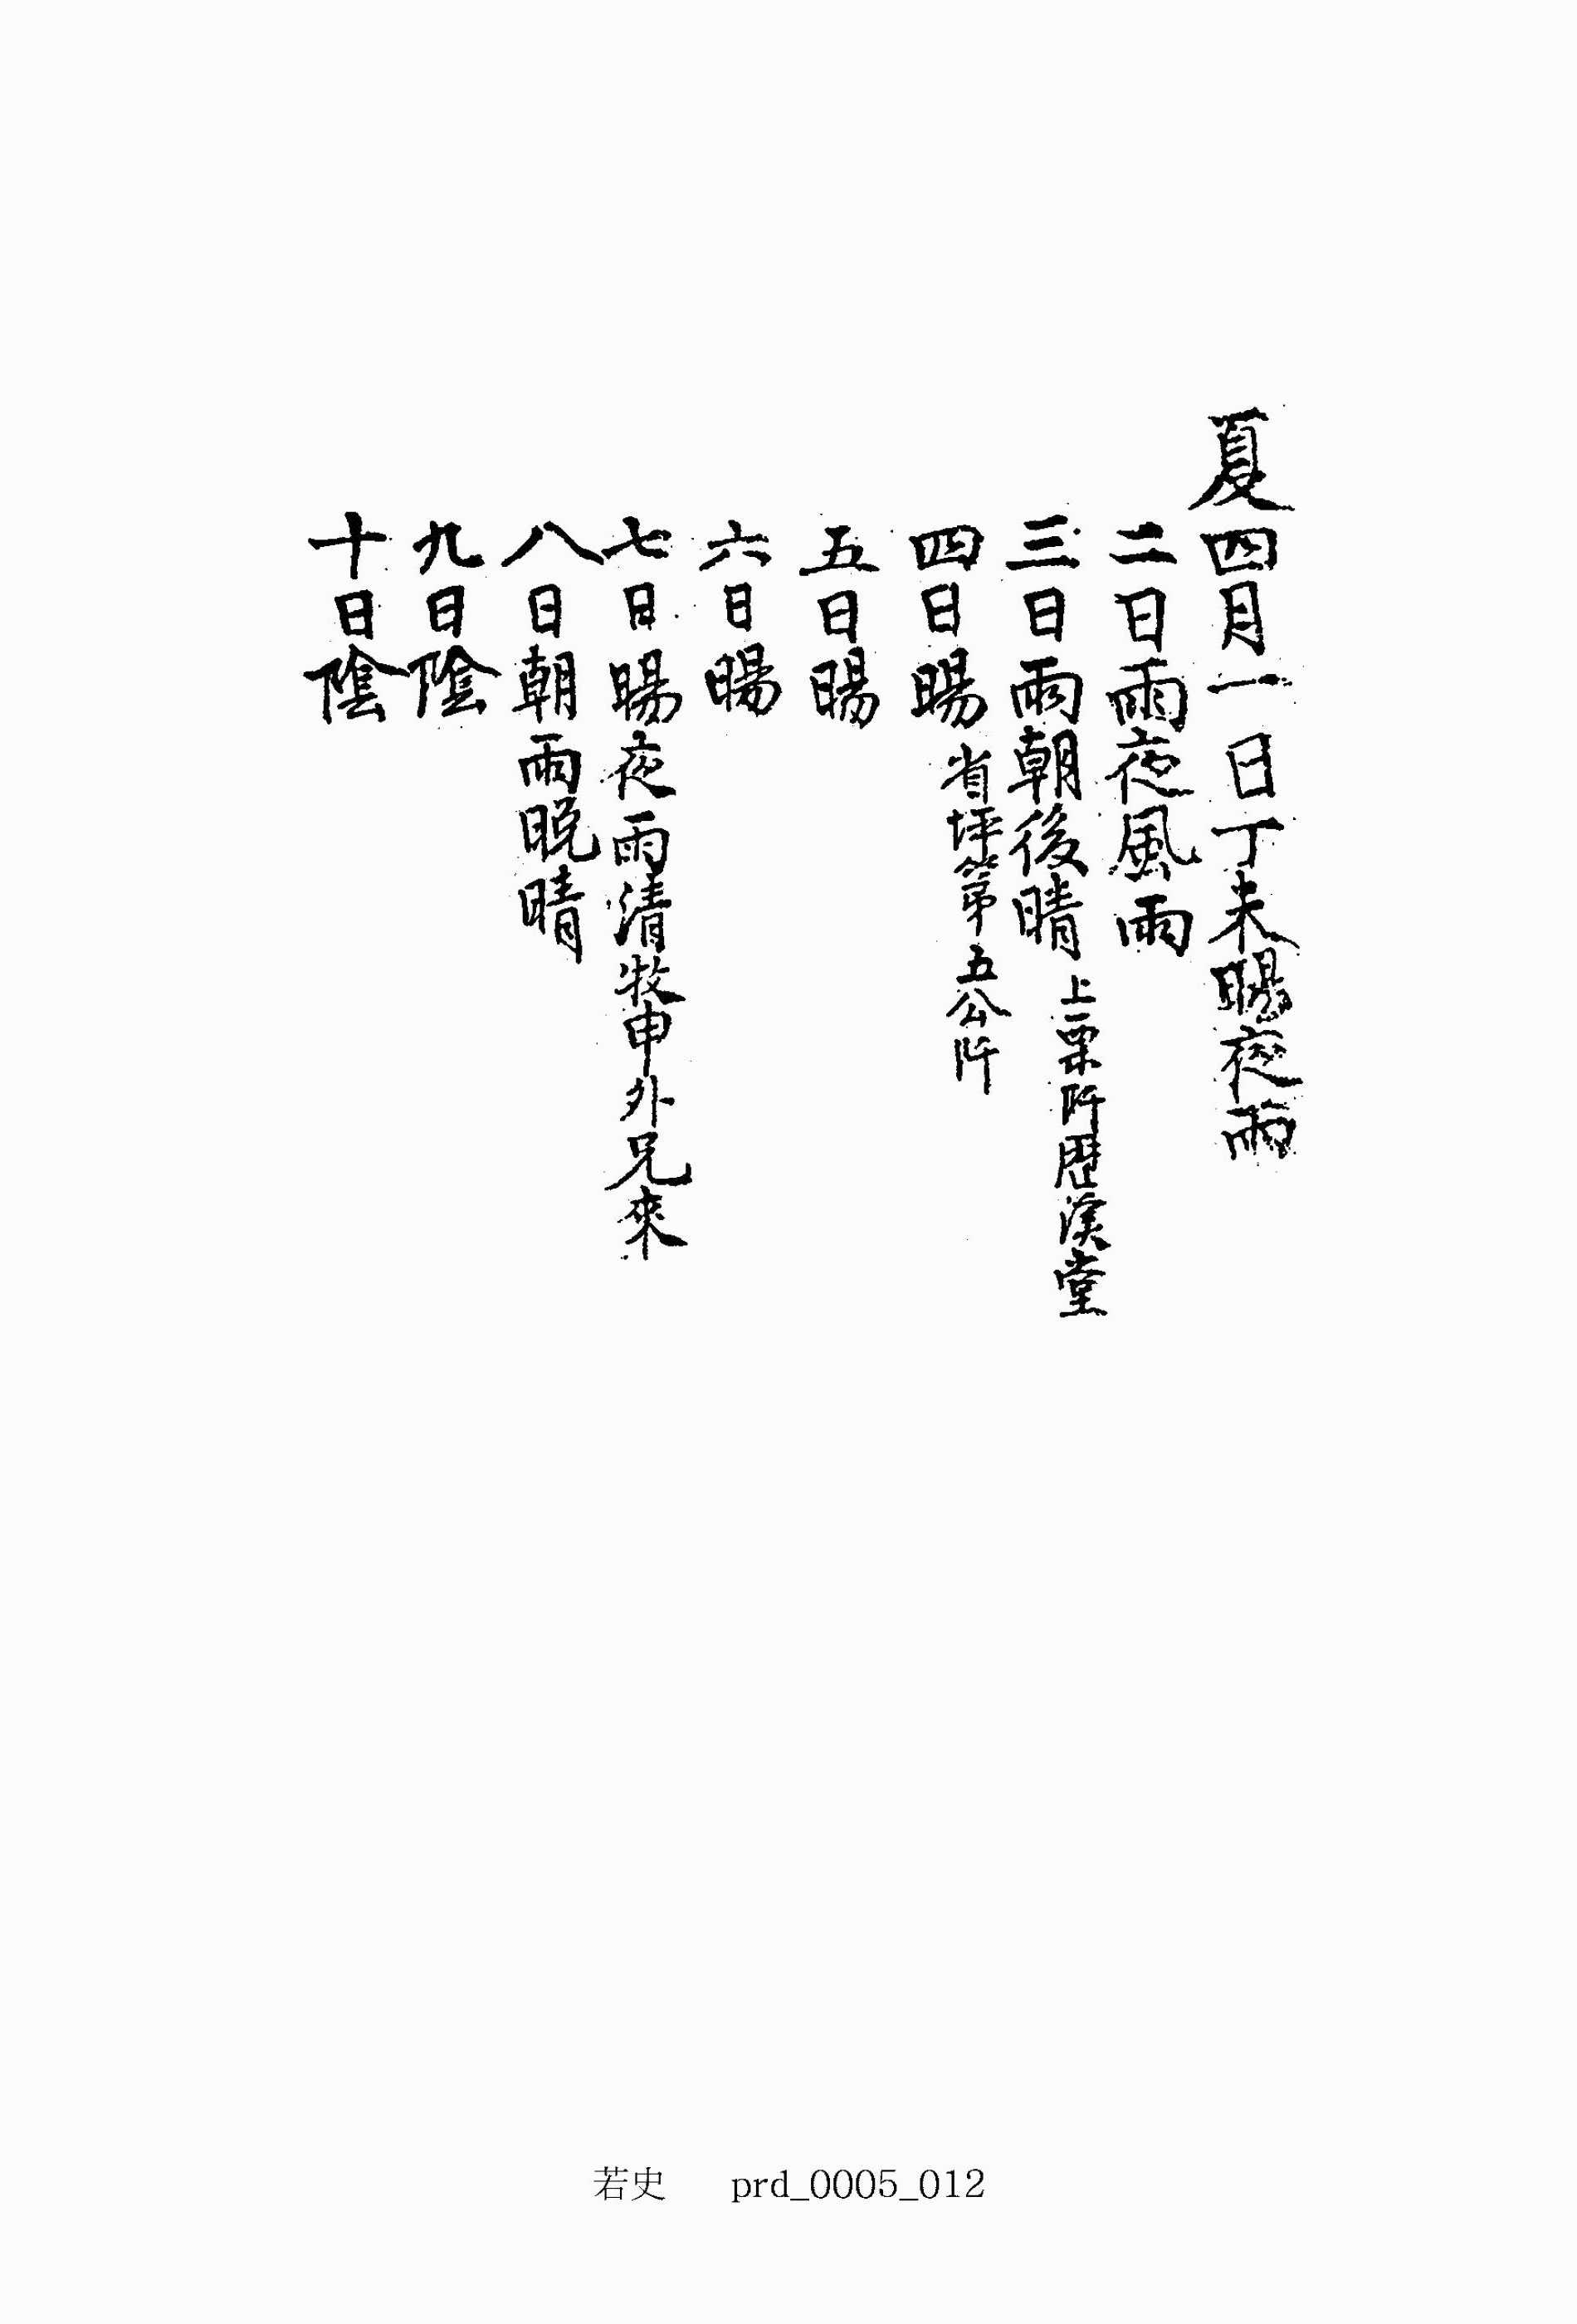 夏四月一日丁未暘夜雨
二日雨夜風雨
三日雨朝後晴上栗阡歷漢堂
四日暘省坪第五公阡
五日暘
六日暘
七日暘夜雨清牧申外兄來
八日朝雨晩晴
九日陰
十日陰
若史 prd_0005_012